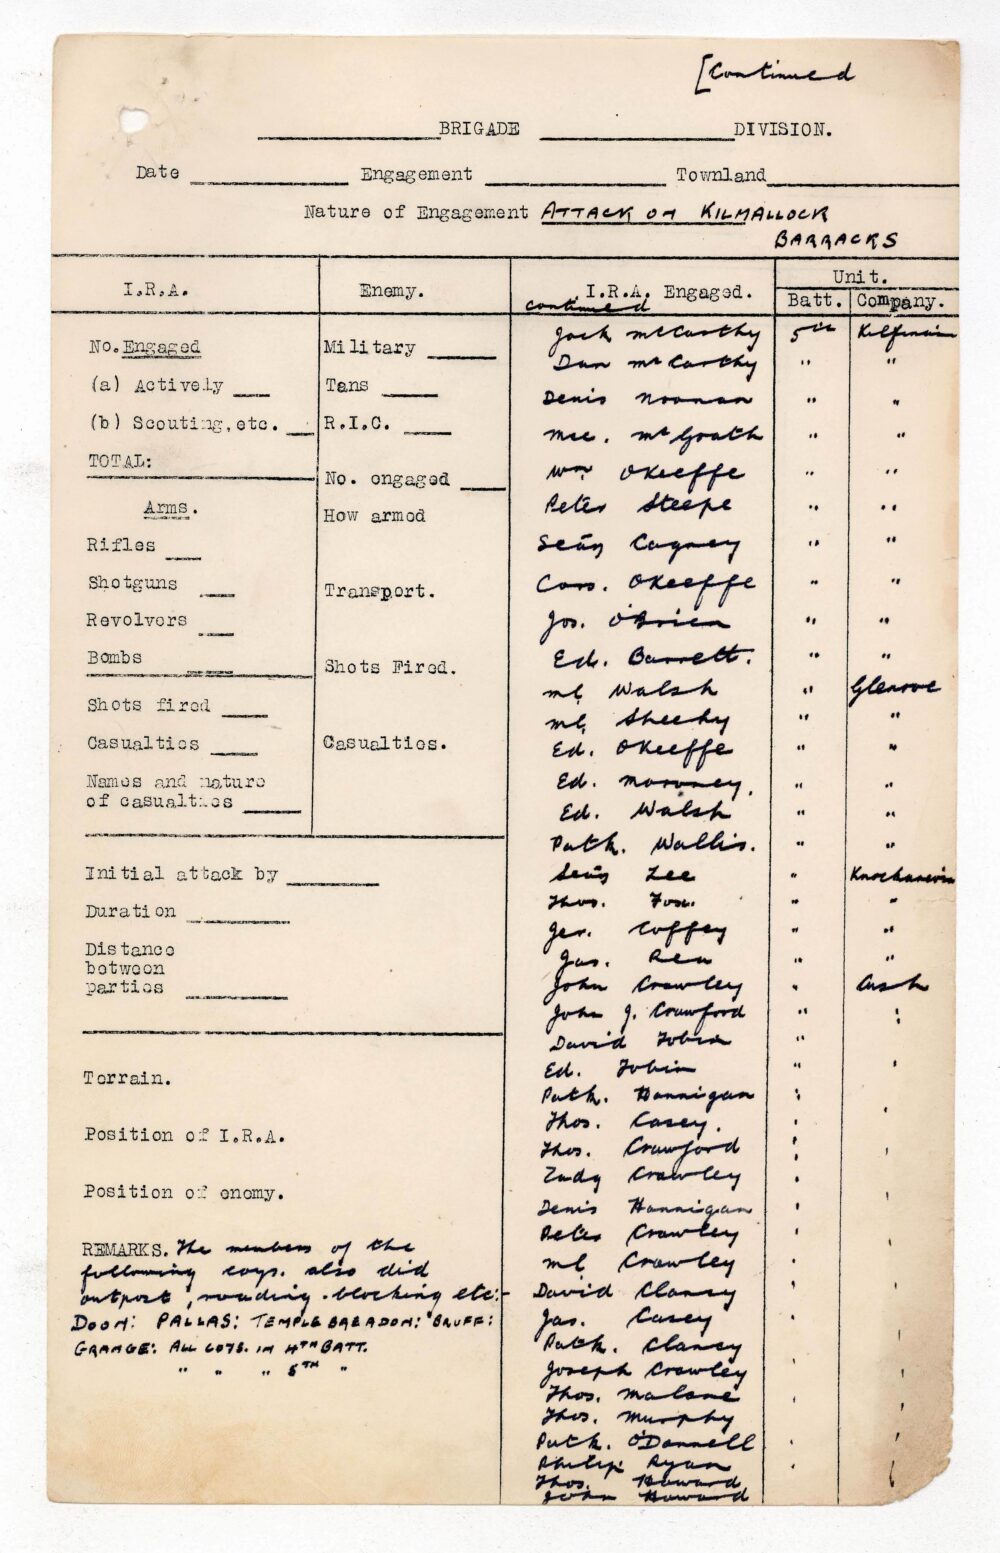 [Continued
BRIGADE DIVISION.
Date Engagement Townland
Nature of Engagement ATTACK ON KILMALLOCK
BARRACKS
I.R.A. Enemy. I.R.A. Engaged. Unit.
continued Batt. Company.
No. Engaged
(a) Actively
(b) Scouting, etc.
TOTAL:
Arms.
Rifles
Shotguns
Revolvers
Bombs
Shots fired
Casualties
Names and nature
of casualties
Military
Tans
R.I.C.
No. engaged
How armed
Transport.
Shots Fired.
Casualties.
Initial attack by
Duration
Distance
between
parties
Terrain.
Position of I.R.A.
Position of enemy.
REMARKS. The members of the
following coys. also did
outpost, roading-blocking etc:-
DOON: PALLAS: TEMPLEBREADON: BRUFF:
GRANGE: ALL COYS. IN 4TH BATT.
" " " 5TH "
Jack McCarthy 5th Kilfinane
Dan McCarthy " "
Denis Noonan " "
Mce. McGrath " "
Wm O'Keeffe " "
Peter Steepe " "
Seán Cagney " "
Cors. O'Keeffe " "
Jos. O'Brien " "
Ed. Barrett. " "
Ml Walsh " Glenroe
Ml. Sheehy " "
Ed. O'Keeffe " "
Ed. Moroney. " "
Ed. Walsh " "
Patk. Wallis. " "
Seán Lee "
Thos. Fox. " "
Jer. Coffey " "
Jas. Rea " "
John Crowley " Cush
John J. Crawford " "
David Tobin "
Ed. Tobin
Patk. Hannigan "
Thos. Casey.
Thos. Crawford "
Zady Crawley
Denis Hannigan
Peter Crowley
Ml Crowley
David Clancy
Jas. Casey
Patk. Clancy
Joseph Crowley
Thos. Malone
Thos. Murphy
Patk. O'Donnell
Philip Ryan
Thos. Howard
John Howard